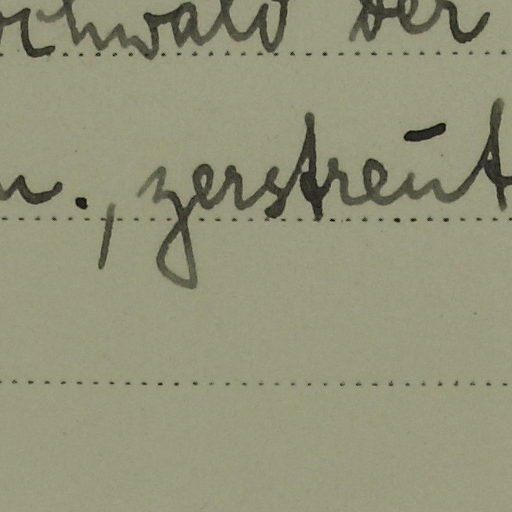 ochwald der
n., zerstreut